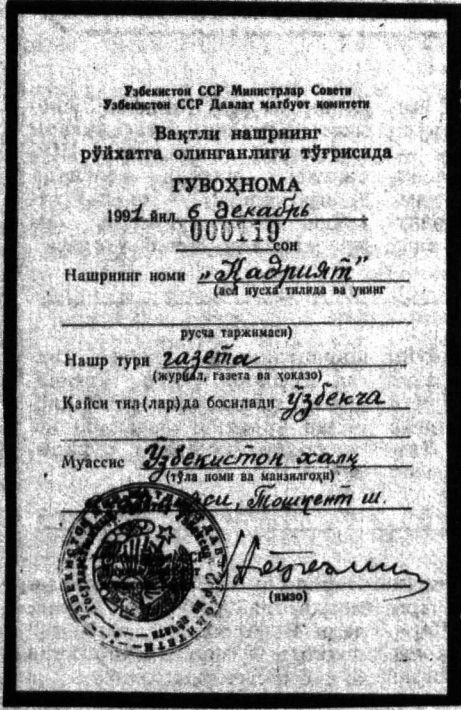 Узбекистон ССР Министрлар Совети
Узбекистон ССР Давлат матбуот комитети
Вақтли нашрнинг
рўйхатга олинганлиги тўғрисида
ГУВОҲНОМА
1991 йил 6 декабрь
000110 сон
Нашрнинг номи „Қадрият”
(асл нусха тилида ва унинг
русча таржимаси)
Нашр тури газета
(журнал, газета ва ҳоказо)
Қайси тил(лар)да босилади ўзбекча
Муассис Ўзбекистон халқ
(тўла номи ва манзилгоҳи)
Тошкент ш.
(имзо)